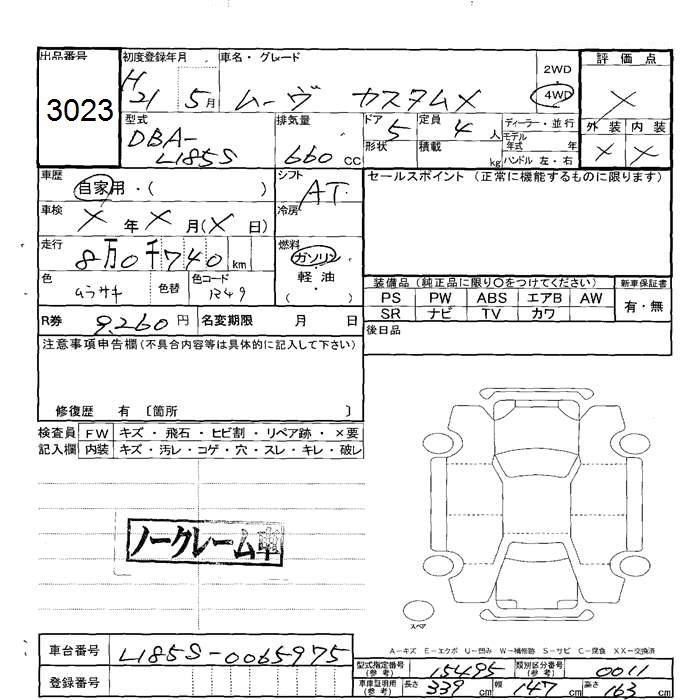 出品番号
3023
初度登録年月
H21 5月
車名・グレード
ムーヴ カスタムX
2WD
4WD
評価点
X
外装 内装
X X
型式
DBA-
L185S
排気量
660 CC
ドア 5
形状
定員 4 人
積載 kg
ディーラー・並行
モデル
年式 年
ハンドル 左・右
車歴
自家用・( )
シフト
AT
セールスポイント (正常に機能するものに限ります)
車検
X 年 X 月(X 日)
冷房
走行
8万0千740 km
燃料
ガソリン
軽油
( )
色
ムラサキ
色替
色コード
装備品 (純正品に限り○をつけてください)
新車保証書
PS PW ABS エアB AW
SR ナビ TV カワ
有・無
R券 9,260 円 名変期限 月 日
後日品
注意事項申告欄(不具合内容等は具体的に記入して下さい)
修復歴 有 〔箇所 〕
検査員 FW キズ・飛石・ヒビ割・リペア跡・×要
記入欄 内装 キズ・汚レ・コゲ・穴・スレ・キレ・破レ
ノークレーム車
スペア
A−キズ E−エクボ U−凹み W−補修跡 S−サビ C−腐食 XX−交換済
車台番号 L185S-0065975
登録番号
型式指定番号
(参考)
15495
類別区分番号
(参考)
0011
車庫証明用
(参考)
長さ 339 cm 幅 147 cm 高さ 163 cm